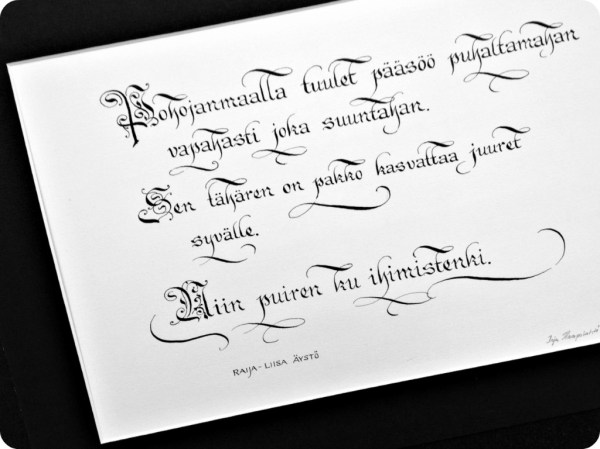 Pohojanmaalla tuulet pääsöö puhaltamahan
vapahasti joka suuntahan.
Sen tähären on pakko kasvattaa juuret
syvälle.
Niin puiren ku ihimistenki.
RAIJA-LIISA ÄYSTÖ